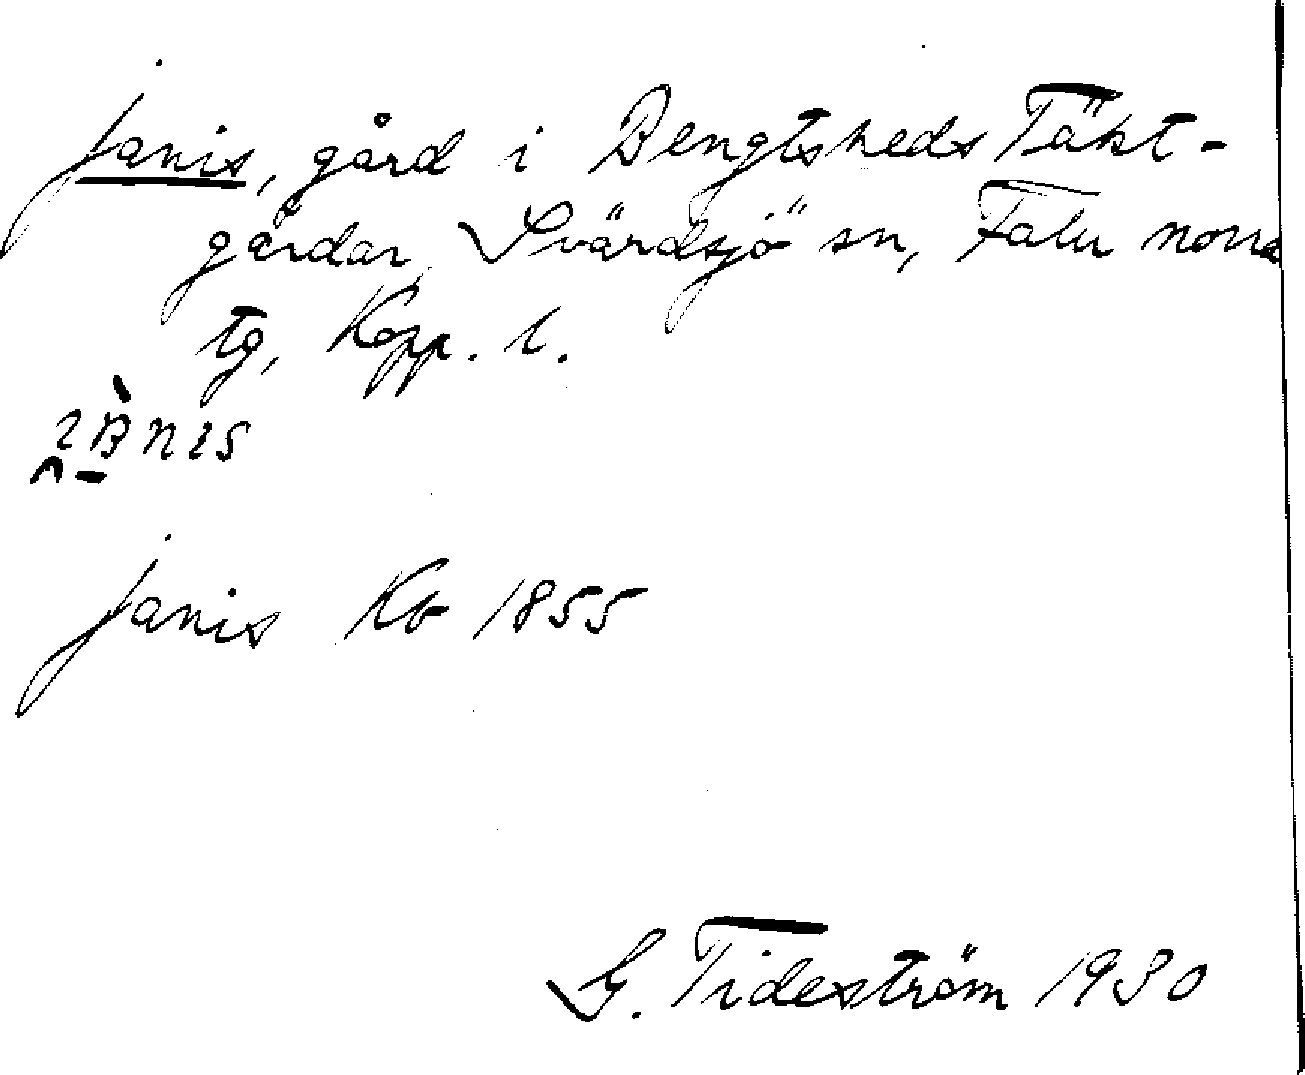 Janis, gård i Bengtsheds Täkt-
gårdar, Svärdsjö sn, Falu norra
tg, Kopp. l.
Janis Kb 1855
G. Tideström 1930